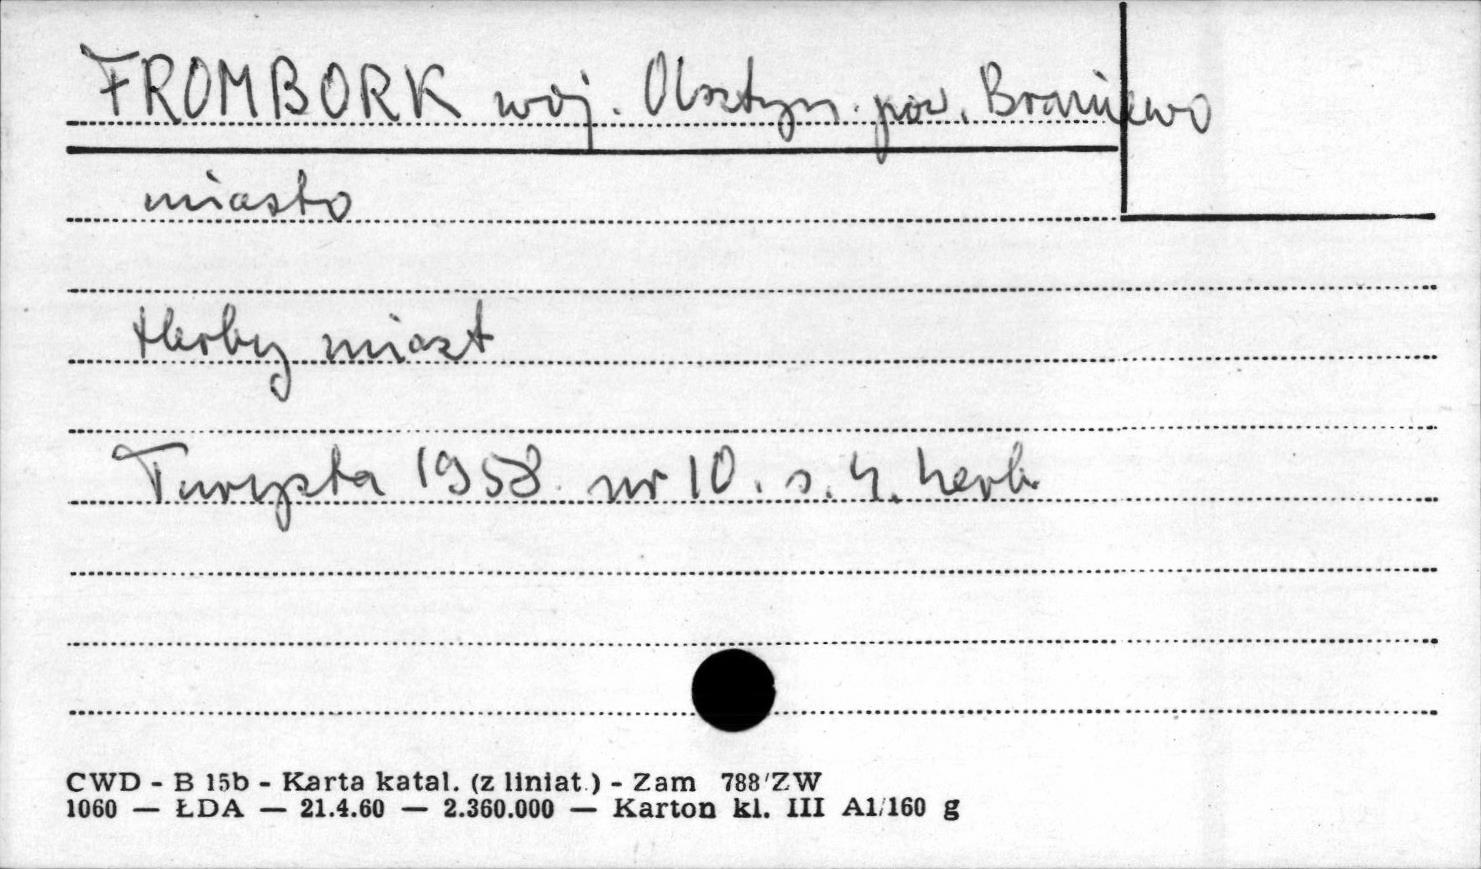 FROMBORK woj. Olsztyn. pow. Braniewo
miasto
Herby miast
Turysta 1958. nr 10. s. 4. herb.
CWD - B 15b - Karta katal. (z liniat.) - Zam 788/ZW
1060 — ŁDA — 21.4.60 — 2.360.000 — Karton kl. III A1/160 g